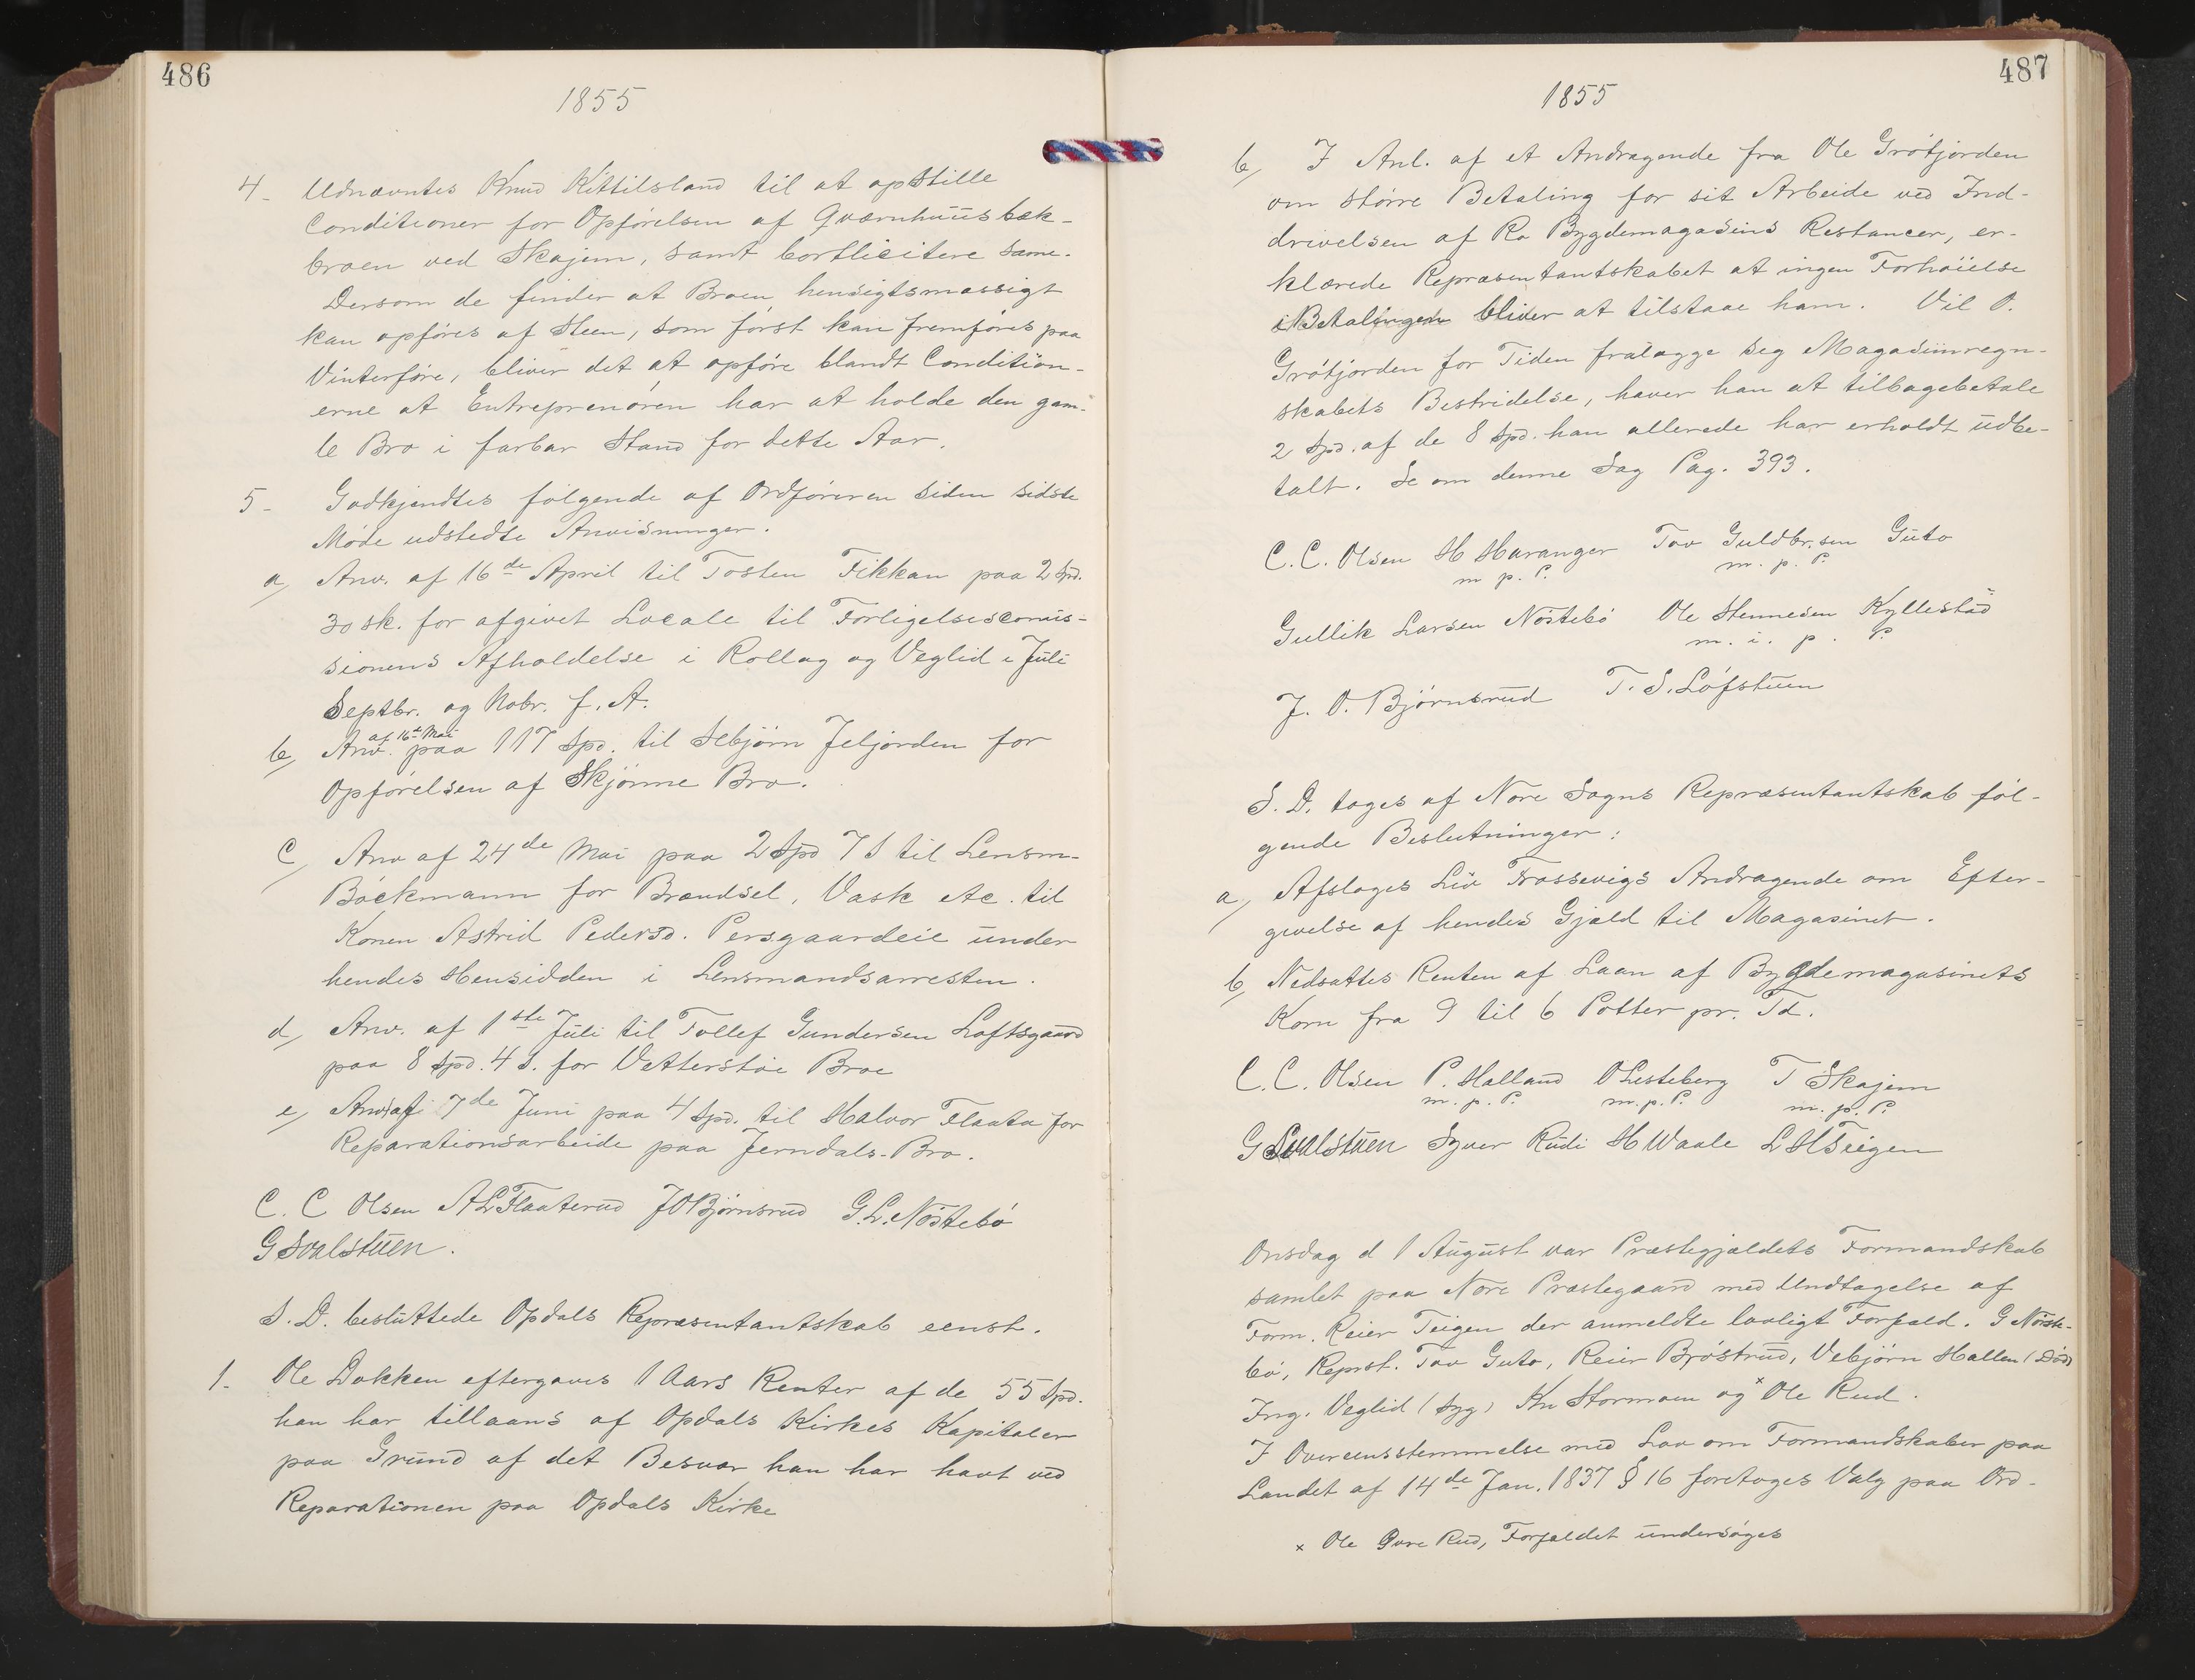 486
1855
4- Udnævntes Knud Kittilsland til at opstille
Conditioner for Opførelsen af Qværnhuusbæk-
broen ved Skajem, samt bortlicitere same.
Dersom de finder at Broen hensigtsmæssigt
kan opføres af Steen, som først kan fremføres paa
Vinterføre, bliver det at opføre blandt Condition-
erne at Entreprenøren har at holde den gam-
le Bro i farbar Stand for dette Aar.
5- Godkjendtes følgende af Ordføreren siden sidste
Møde udstedte Anvisninger.
a, Anv. af 16de April til Tosten Fikkan paa 2 Spd.
30 sk. for afgivet Locale til Forligelsescomis-
sionens Afholdelse i Rollag og Veglid i Juli
Septbr. og Nobr. f. A.
b, Anv. af 16de Mai paa 117 Spd. til Sebjørn Jeljorden for
Opførelsen af Skjønne Bro.
c, Anv af 24de Mai paa 2 Spd 7 s til Lensm-
Böckmann for Brændsel, Vask etc. til
Konen Astrid Pedersd. Persgaardeie under
hendes Hensidden i Lensmandsarresten.
d, Anv. af 1ste Juli til Tollef Gundersen Loftsgaard
paa 8 Spd. 4 s. for Vetterstøe Broe
e, Anv af 7de Juni paa 4 Spd. til Halvor Flaata for
Reparationsarbeide paa Jerndals-Bro.
C. C Olsen A L Flaaterud J O Bjørnsrud G. L. Nøstebø
G Svalstuen.
S. D. besluttede Opdals Repræsentantskab eenst.
1- Ole Dokken eftergaves 1 Aars Renter af de 55 Spd.
han har tillaans af Opdals Kirkes Kapitaler
paa Grund af det Besvær han har havt ved
Reparationen paa Opdals Kirke
487
1855
b, I Anl. af et Andragende fra Ole Grøtjorden
om større Betaling for sit Arbeide ved Ind-
drivelsen af Ro Bygdemagasins Restancer, er-
klærede Repræsentantskabet at ingen Forhøielse
i Betalingen bliver at tilstaae ham. Vil O.
Grøtjorden for Tiden fralægge seg Magasinregn-
skabets Bestridelse, haver han at tilbagebetale
2 Spd. af de 8 Spd. han allerede har erholdt udbe-
talt. Se om denne Sag Pag. 393.
C. C. Olsen H Haranger Tov Guldbr.sen Guto
m p. P. m. p. P.
Gullik Larsen Nøstebø Ole Stennesen Kyllestad
m. i. p. P.
J. O. Bjørnsrud T. S. Løfstuen
S. D. toges af Nore Sogns Repræsentantskab føl-
gende Beslutninger:
a, Afsloges Liv Frossevigs Andragende om Efter-
givelse af hendes Gjæld til Magasinet.
b, Nedsattes Renten af Laan af Bygdemagasinets
Korn fra 9 til 6 Potter pr. Td.
C. C. Olsen P. Halland O Lesteberg T Skajem
m. p. P. m. p. P. m. p. P.
G Svalstuen Syver Rudi H Waale L H Teigen
Onsdag d 1 August var Præstegjældets Formandskab
samlet paa Nore Præstegaard med Undtagelse af
Form. Reier Teigen der anmeldte lovligt Forfald. G Nøste-
bø, Reprst. Tov Guto, Reier Brøstrud, Vebjørn Hallen (Død)
Ing. Veglid (syg) Kn Stormoen og x Ole Rud.
I Overensstemmelse med Lov om Formandskaber paa
Landet af 14de Jan. 1837 § 16 foretoges Valg paa Ord-
x Ole Gvre Rud, Forfaldet undersøges